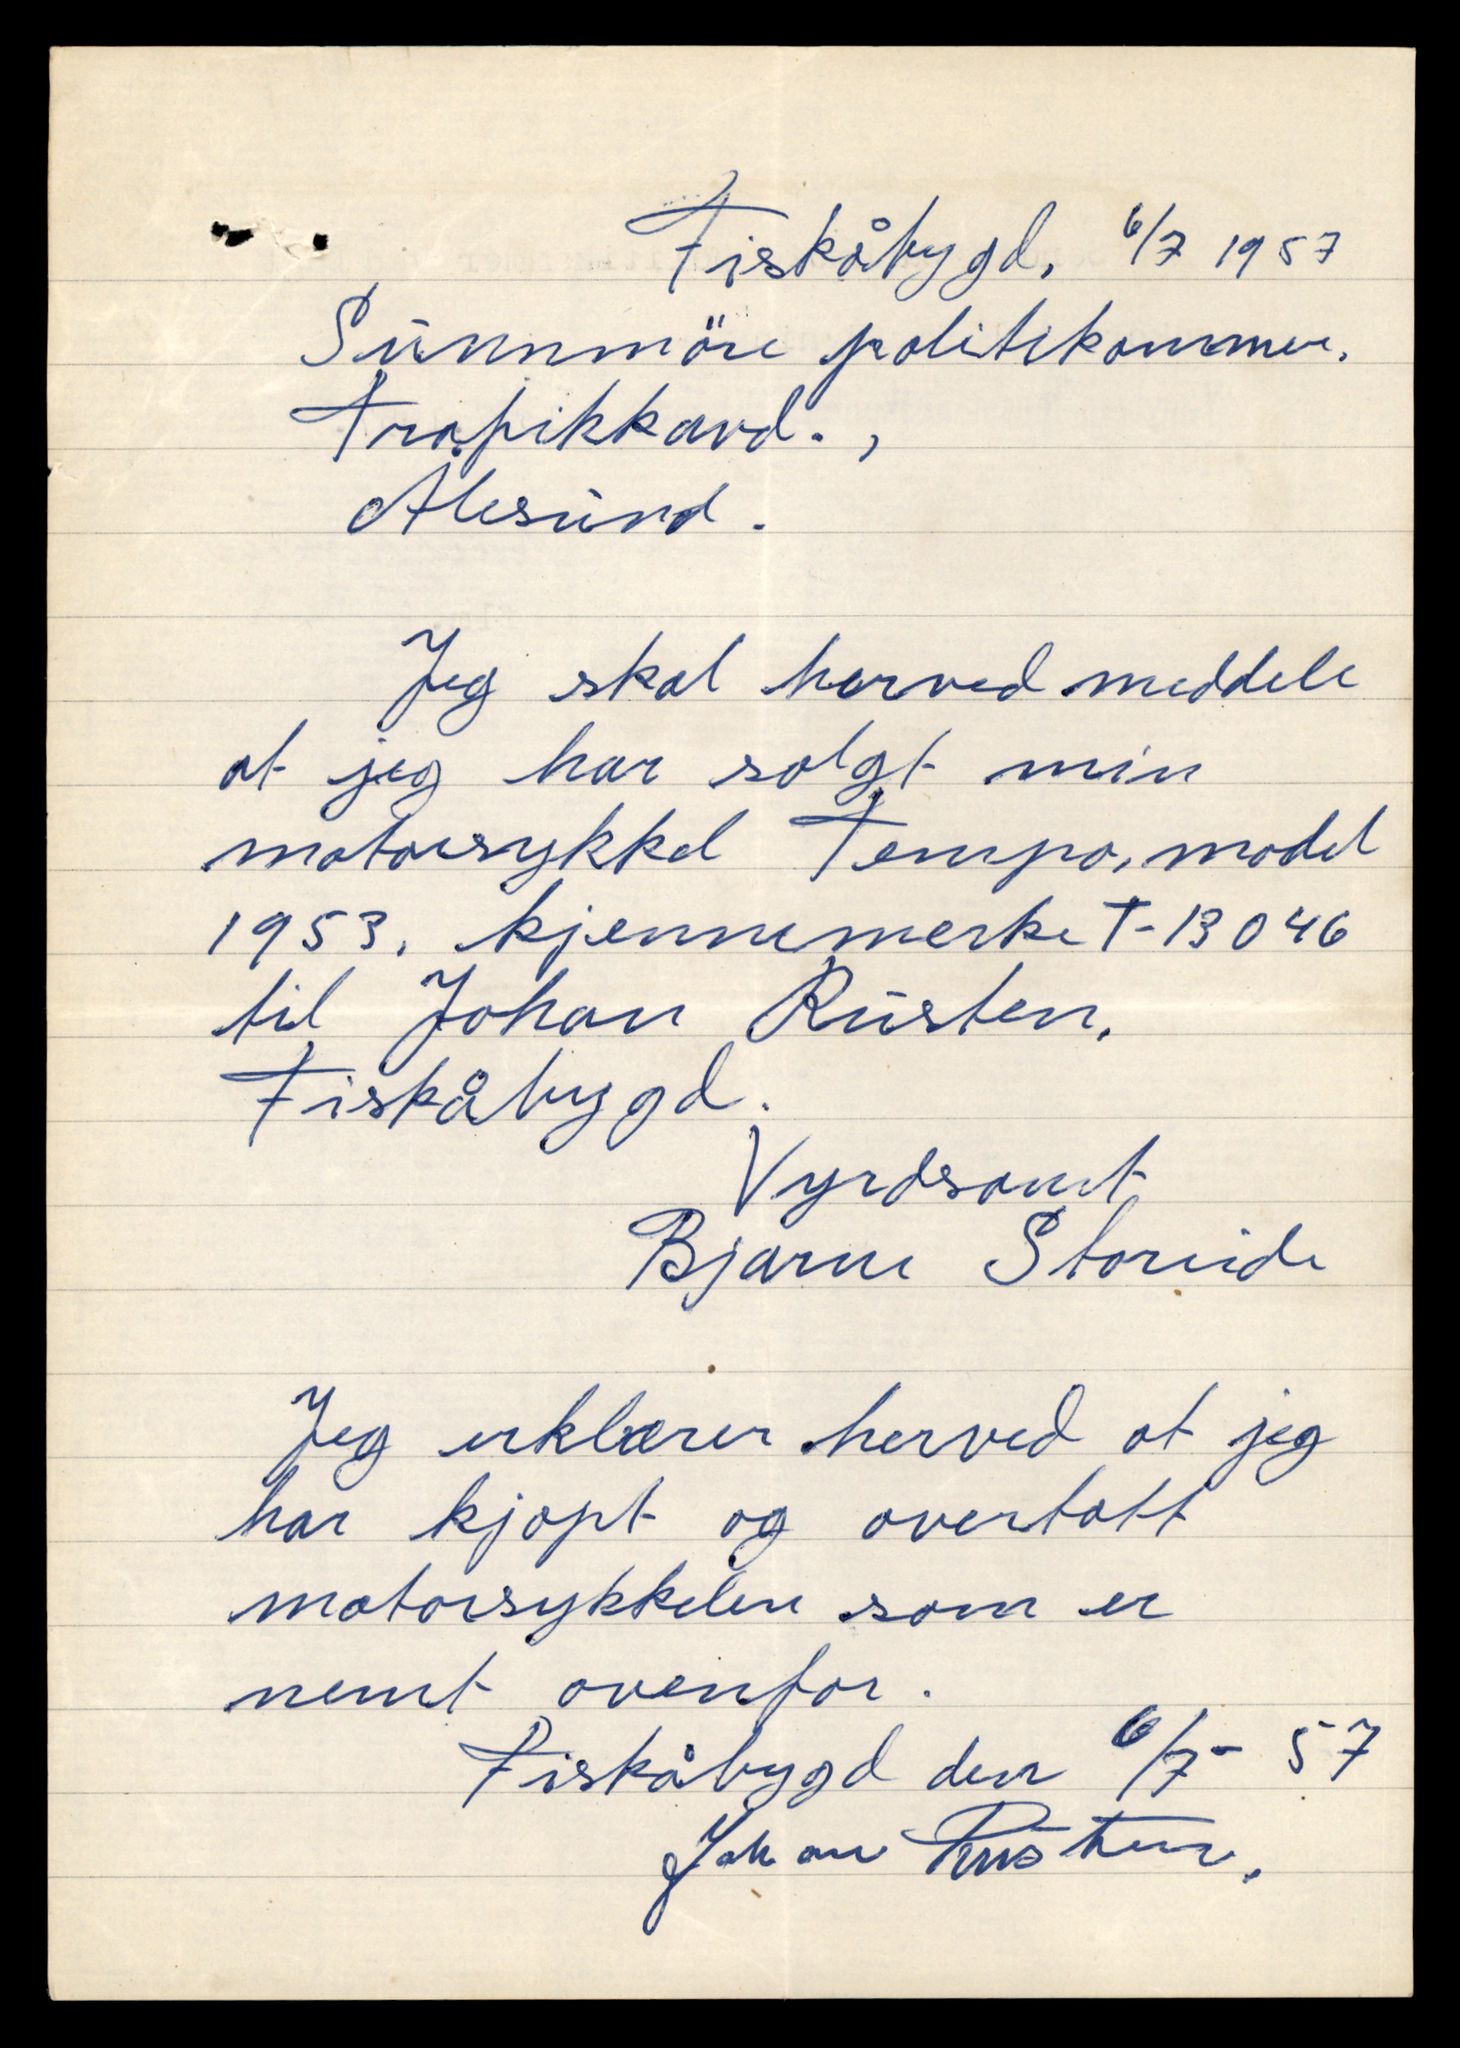 Fiskåbygd, 6/7 1957
Sunnmöre politikammer.
Trafikkavd.,
Ålesund.
Jeg skal herved meddele
at jeg har solgt min
motorsykkel Tempo, model
1953. kjennemerke T-13046
til Johan Rusten,
Fiskåbygd.
Vyrdsamt
Bjarne Storeide
Jeg erklærer herved at jeg
har kjøpt og overtatt
motorsykkelen som er
nemt ovenfor.
Fiskåbygd den 6/7- 57
Johan Rusten.